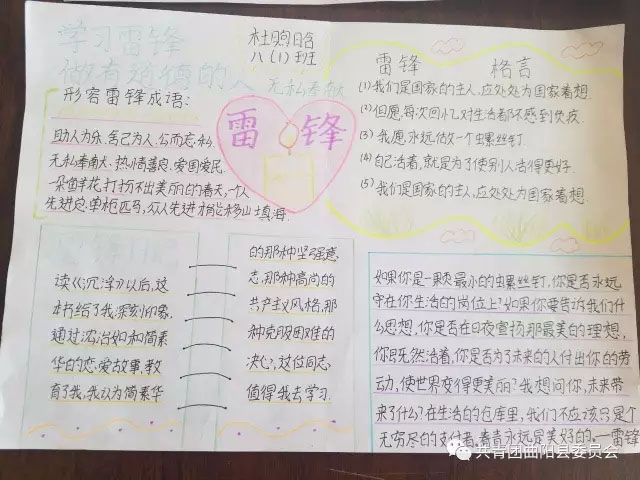 学习雷锋
做有道德的人
杜煦晗
八(1)班
无私奉献
形容雷锋成语:
助人为乐,舍己为人,公而忘私.
无私奉献,热情善良,爱国爱民.
一朵鲜花,打扮不出美丽的春天,一个人
先进总单枪匹马,众人先进才能移山填海.
雷锋
雷锋 格言
(1)我们是国家的主人,应处处为国家着想.
(2)但愿,每次回忆,对生活都不感到负疚.
(3)我愿永远做一个螺丝钉.
(4)自己活着,就是为了使别人活得更好.
(5)我们是国家的主人,应处处为国家着想.
读《沉浮》以后,这
本书给了我深刻印象,
通过沈浩如和简素
华的恋爱故事,教
育了我,我认为简素华
的那种坚强意
志,那种高尚的
共产主义风格,那
种克服困难的
决心,这位同志,
值得我去学习.
如果你是一颗最小的螺丝钉,你是否永远
守在你生活的岗位上?如果你要告诉我们什
么思想,你是否在日夜宣扬那最美的理想,
你既然活着,你是否为了未来的人付出你的劳
动,使世界变得更美丽?我想问你,未来带
来了什么?在生活的仓库里,我们不应该只是个
无穷尽的支付者.青春永远是美好的.—雷锋
共青团曲阳县委员会